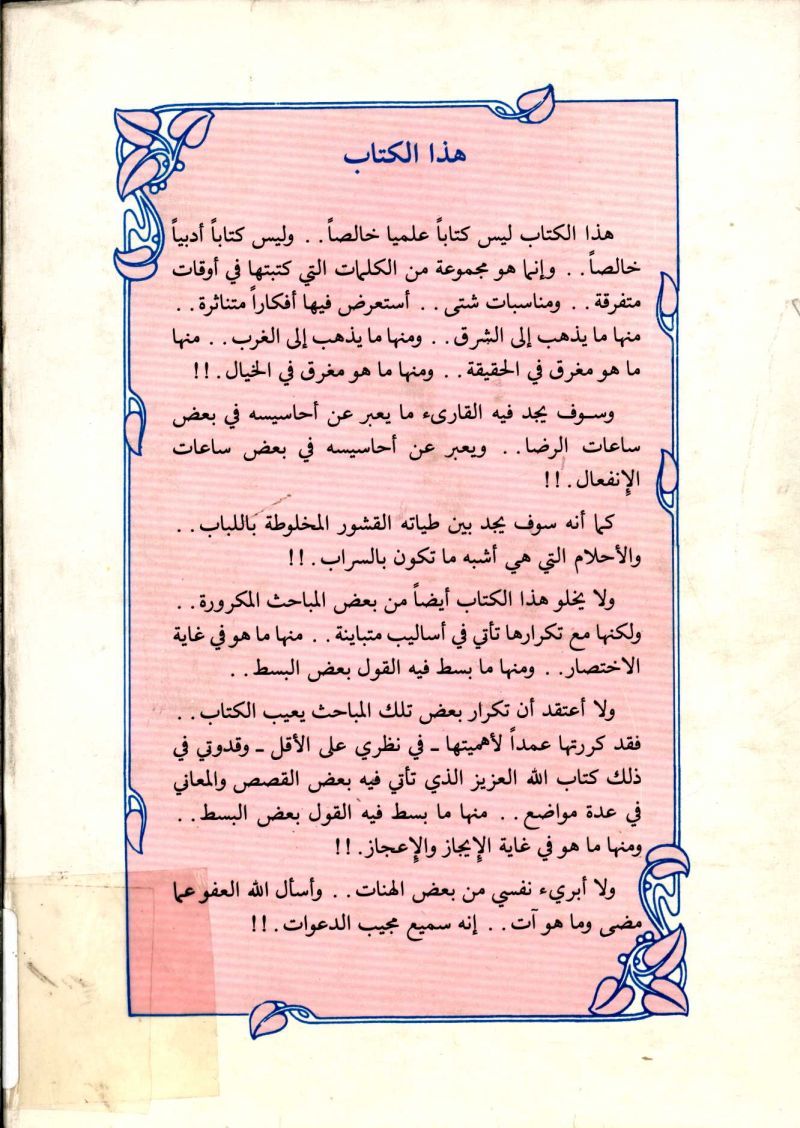 هذا الكتاب
هذا الكتاب ليس كتاباً علميا خالصاً . . وليس كتاباً أدبياً
خالصاً . . وإنما هو مجموعة من الكلمات التي كتبتها في أوقات
متفرقة . . ومناسبات شتى . . أستعرض فيها أفكاراً متناثرة . .
منها ما يذهب إلى الشرق . . ومنها ما يذهب إلى الغرب . . منها
ما هو مغرق في الحقيقة . . ومنها ما هو مغرق في الخيال . !!
وسوف يجد فيه القارىء ما يعبر عن أحاسيسه في بعض
ساعات الرضا . . ويعبر عن أحاسيسه في بعض ساعات
الإنفعال . !!
كما أنه سوف يجد بين طياته القشور المخلوطة باللباب . .
والأحلام التي هي أشبه ما تكون بالسراب . !!
ولا يخلو هذا الكتاب أيضاً من بعض المباحث المكرورة . .
ولكنها مع تكرارها تأتي في أساليب متباينة . . منها ما هو في غاية
الاختصار . . ومنها ما بسط فيه القول بعض البسط . .
ولا أعتقد أن تكرار بعض تلك المباحث يعيب الكتاب . .
فقد كررتها عمداً لأهميتها ـ في نظري على الأقل ـ وقدوتي في
ذلك كتاب الله العزيز الذي تأتي فيه بعض القصص والمعاني
في عدة مواضع . . منها ما بسط فيه القول بعض البسط . .
ومنها ما هو في غاية الإيجاز والإعجاز . !!
ولا أبريء نفسي من بعض الهنات . . وأسأل الله العفو عما
مضى وما هو آت . . إنه سميع مجيب الدعوات . !!